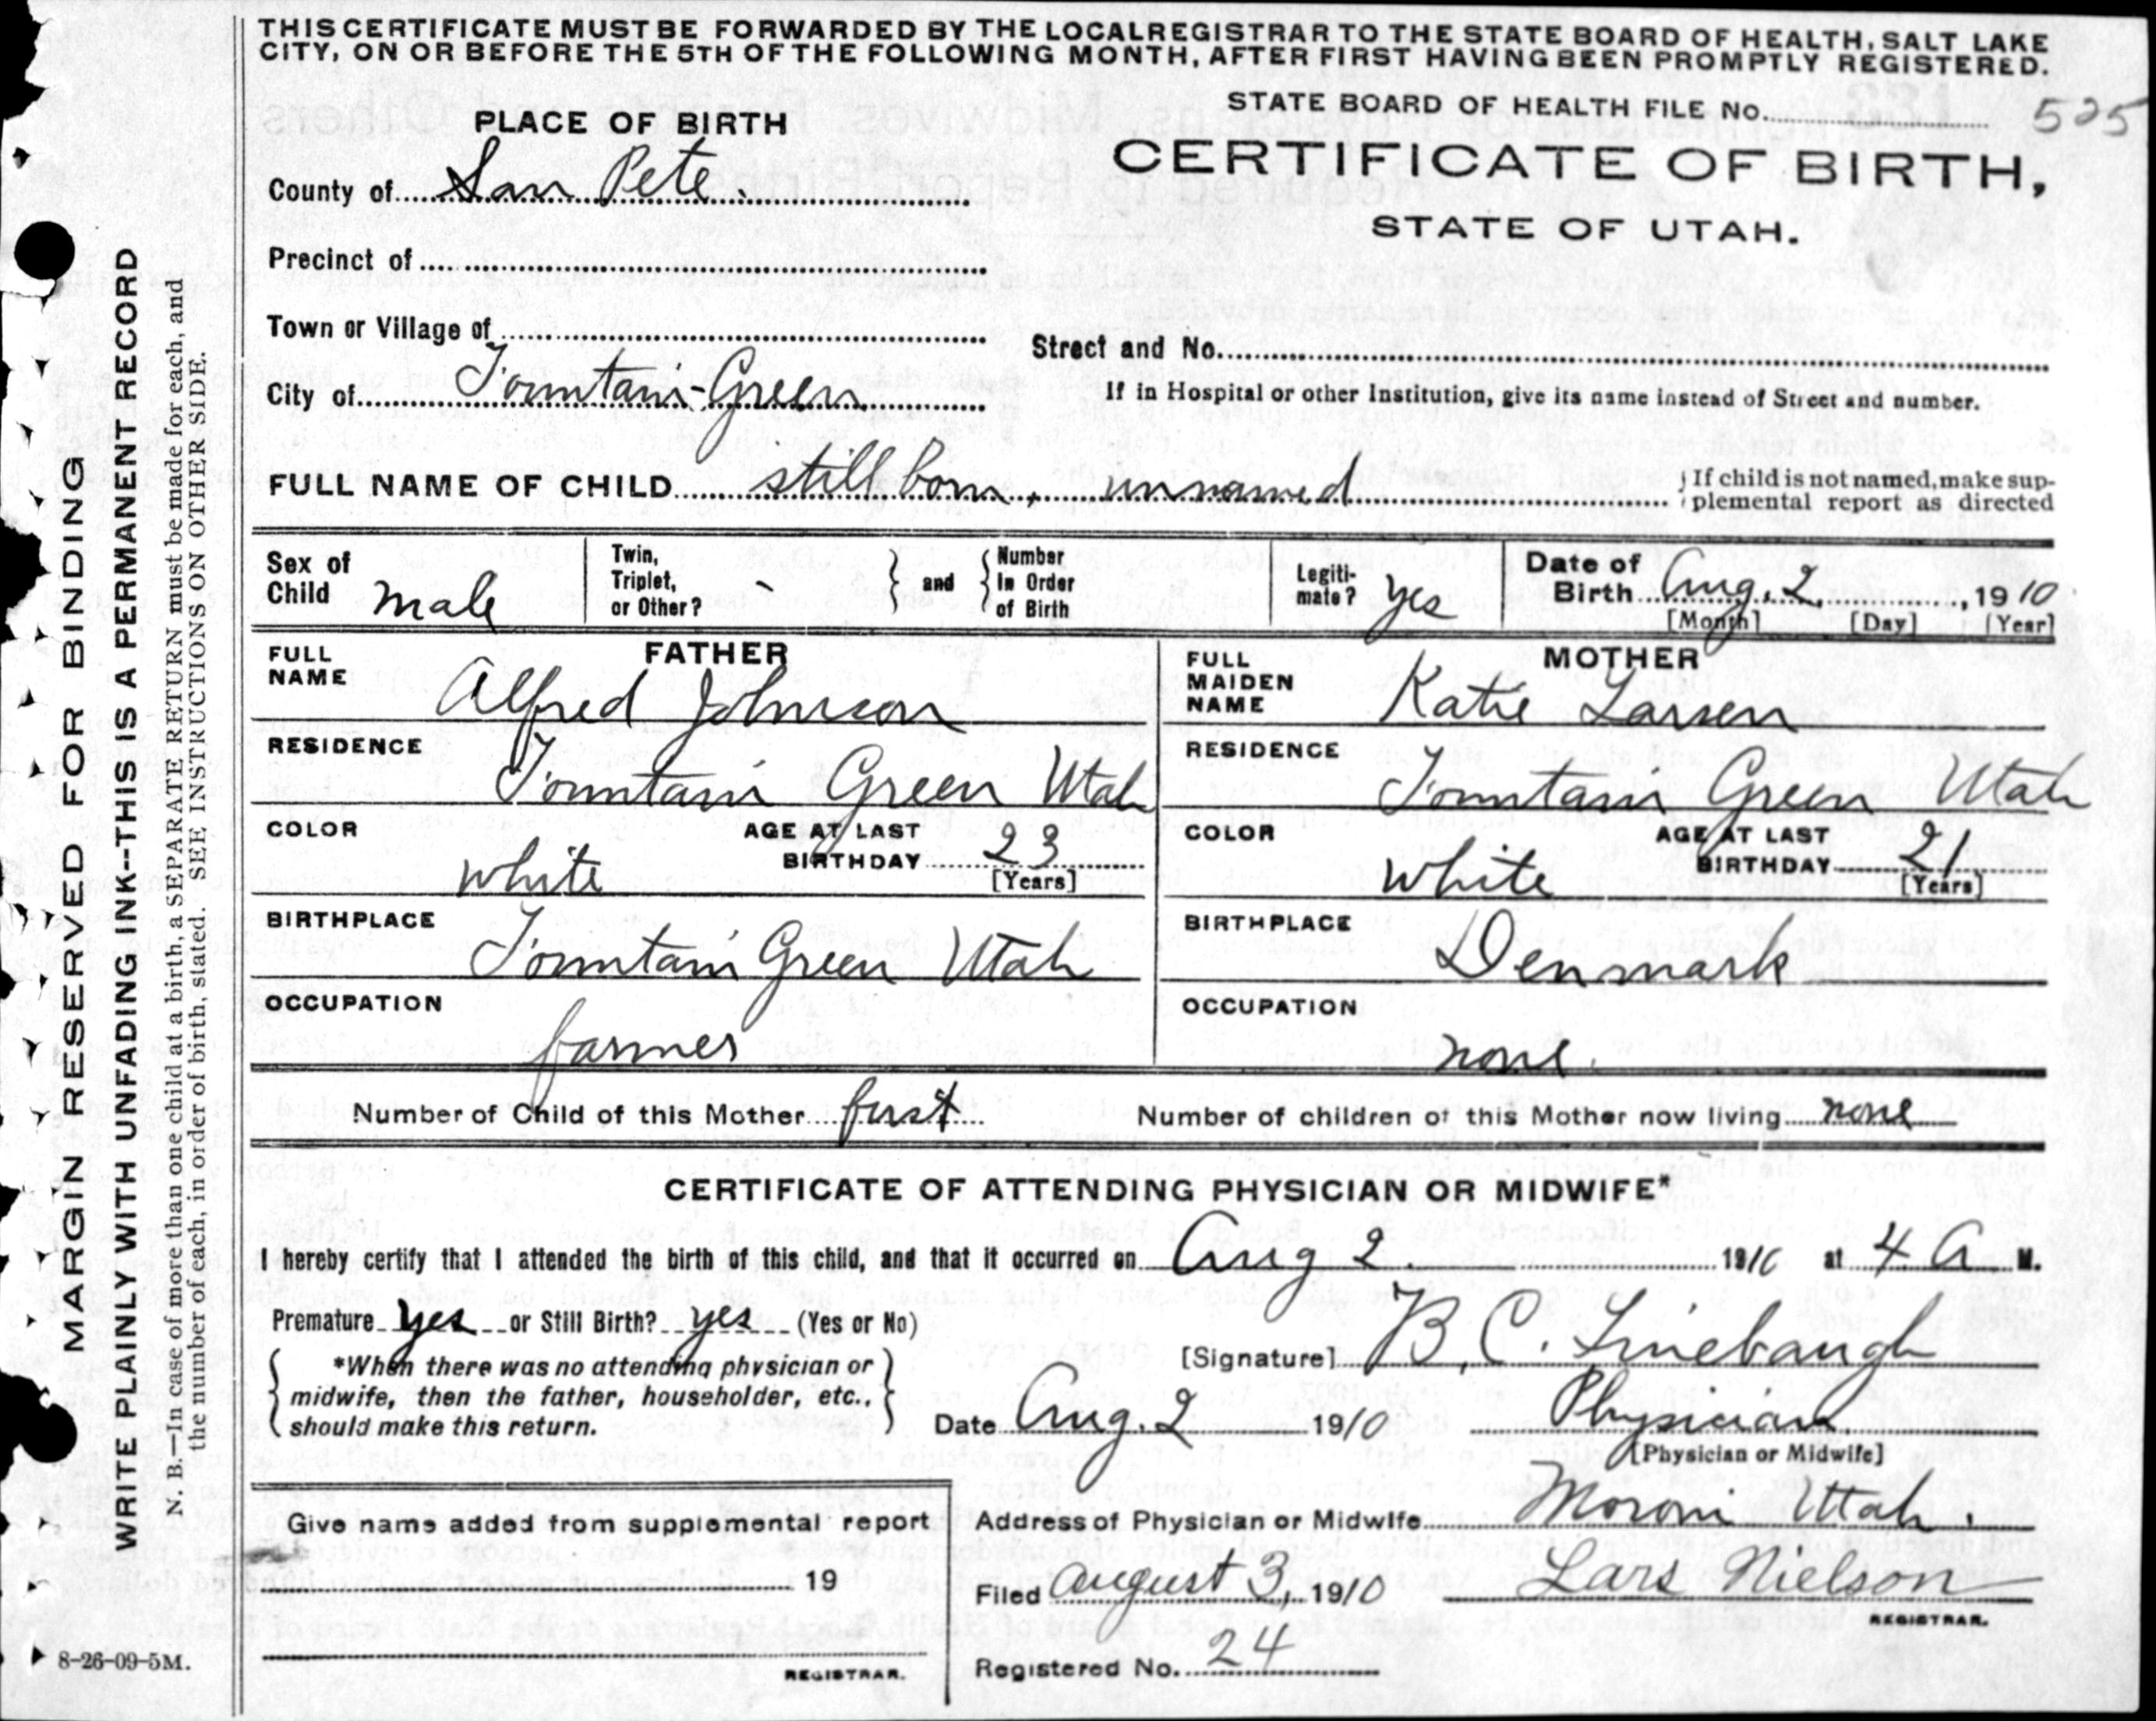 THIS CERTIFICATE MUST BE FORWARDED BY THE LOCAL REGISTRAR TO THE STATE BOARD OF HEALTH, SALT LAKE
CITY, ON OR BEFORE THE 5TH OF THE FOLLOWING MONTH, AFTER FIRST HAVING BEEN PROMPTLY REGISTERED.
STATE BOARD OF HEALTH FILE No. 525
PLACE OF BIRTH
CERTIFICATE OF BIRTH,
STATE OF UTAH.
County of San Pete.
Precinct of
Town or Village of
Street and No.
City of Fountain-Green
If in Hospital or other Institution, give its name instead of Street and number.
FULL NAME OF CHILD still born, unnamed
If child is not named, make sup-
plemental report as directed
Sex of Child male
Twin, Triplet, or Other? -
and
Number In Order of Birth
Legiti-mate? yes
Date of Birth Aug. 2, 1910
[Month] [Day] [Year]
FATHER
FULL NAME Alfred Johnson
RESIDENCE Fountain Green Utah
COLOR white
AGE AT LAST BIRTHDAY 23
[Years]
BIRTHPLACE Fountain Green Utah
OCCUPATION farmer
MOTHER
FULL MAIDEN NAME Katie Larsen
RESIDENCE Fountain Green Utah
COLOR white
AGE AT LAST BIRTHDAY 21
[Years]
BIRTHPLACE Denmark
OCCUPATION none.
Number of Child of this Mother first
Number of children of this Mother now living none
CERTIFICATE OF ATTENDING PHYSICIAN OR MIDWIFE*
I hereby certify that I attended the birth of this child, and that it occurred on Aug 2. 1910 at 4 A M.
Premature yes or Still Birth? yes (Yes or No)
*When there was no attending physician or
midwife, then the father, householder, etc.,
should make this return.
[Signature] B. C. Linebaugh
Date Aug. 2 1910
Physician
[Physician or Midwife]
Give name added from supplemental report
19
REGISTRAR.
Address of Physician or Midwife Moroni Utah.
Filed August 3, 1910
Lars Nielson
REGISTRAR.
Registered No. 24
MARGIN RESERVED FOR BINDING
WRITE PLAINLY WITH UNFADING INK--THIS IS A PERMANENT RECORD
N. B.—In case of more than one child at a birth, a SEPARATE RETURN must be made for each, and
the number of each, in order of birth, stated. SEE INSTRUCTIONS ON OTHER SIDE.
8-26-09-5M.